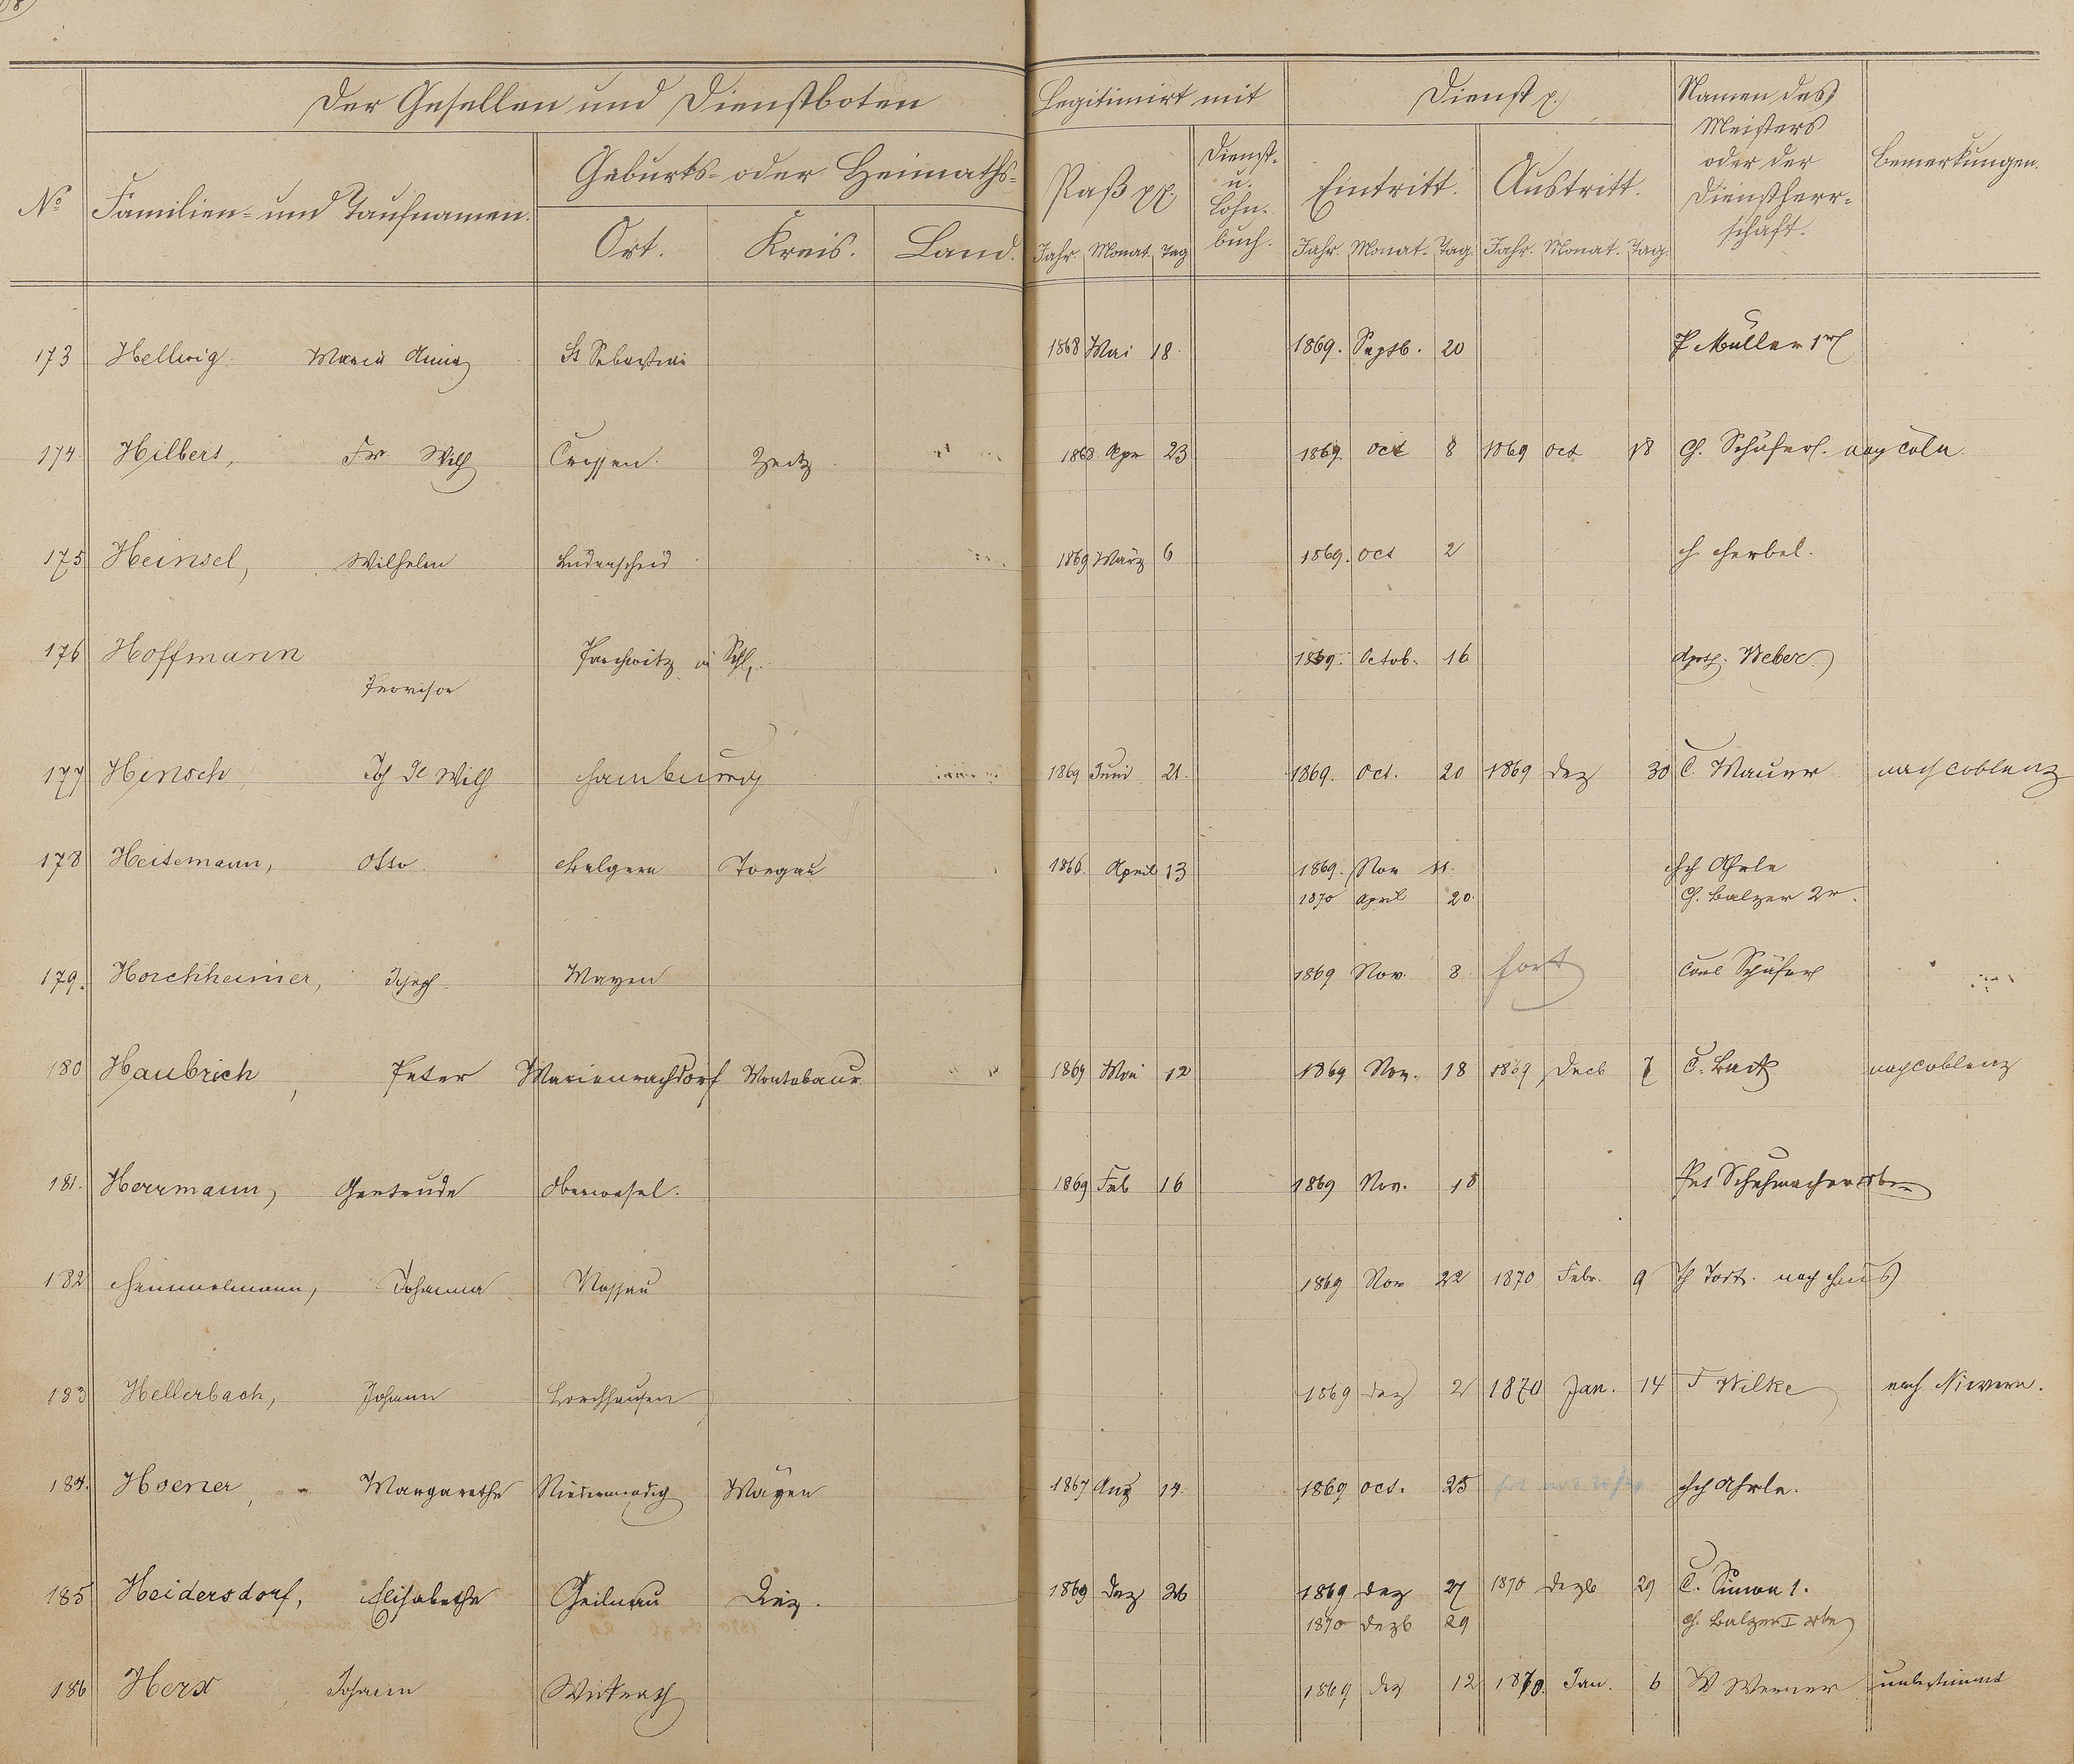 Der Gesellen und Dienstboten
Legitimirt mit
Dienst p.
Namen des
Meisters
oder der
Dienstherr-
schaft.
Bemerkungen.
No
Familien- und Taufnamen.
Geburts- oder Heimaths-
Ort. Kreis. Land.
Paß pp.
Dienst-
u.
Lohn-
buch.
Eintritt. Austritt.
Jahr. Monat. Tag Jahr. Monat. Tag. Jahr. Monat. Tag.
173 Hellwig Maria Anna St Sebastian 1868 Mai 18 1869. Septb. 20 P Müller 1r
174 Hilbers, Fr. Wilh Crossen Zeitz 1868 Apr 23 1869 Oct 8 1869 Oct 18 Ch. Schäfer. nach Cöln
175 Heinsel, Wilhelm Lüdenscheid 1869 März 6 1869. Oct 2 H. Herbel.
176 Hoffmann Parchwitz in Schl. 1869. Octob. 16 Apoth. Weber
Provisor
177 Hinsch Wilh Hamburg 1869 Juni 21 1869. Oct. 20 1869 Dez 30 C. Maurer nach Coblenz
178 Heitemann, Otto Belgern Torgau 1866 April 13 1869. Nov 11. Ahrle
1870 April 20. Ch. Balzer 2r.
179. Horchheimer, Joseph Mayen 1869 Nov. 8 fort Carl Schäfer
180 Haubrich, Peter Marienrachdorf Montabaur 1869 Mai 12 1869 Nov. 18 1869 Decb C. nach Coblenz
181. Herrmann, Gertrude Oberwesel. 1869 Feb 16 1869 Nov. 18 Schuhmacher
182 Himmelmann, Johanna Nassau 1869 Nov 22 1870 Febr. 9 nach
183 Hellerbach, Johann Lorchhausen 1869 Dez 2 1870 Jan. 14 F Wilke nach Nievern.
184. Hoener, Margarethe Niedermendig Mayen 1867 Aug 14. 1869 Oct. 25 Ahrle.
185 Heidersdorf, Elisabethe Geilnau Diez. 1869 Dez 26 1869 Dez 27 1870 Dezb 29 C. Simon 1.
1870 Dezb 29 Ch. Balzer I
186 Herx, Johann 1869 Dez 12 1870. Jan. 6 W Werner unbestimmt